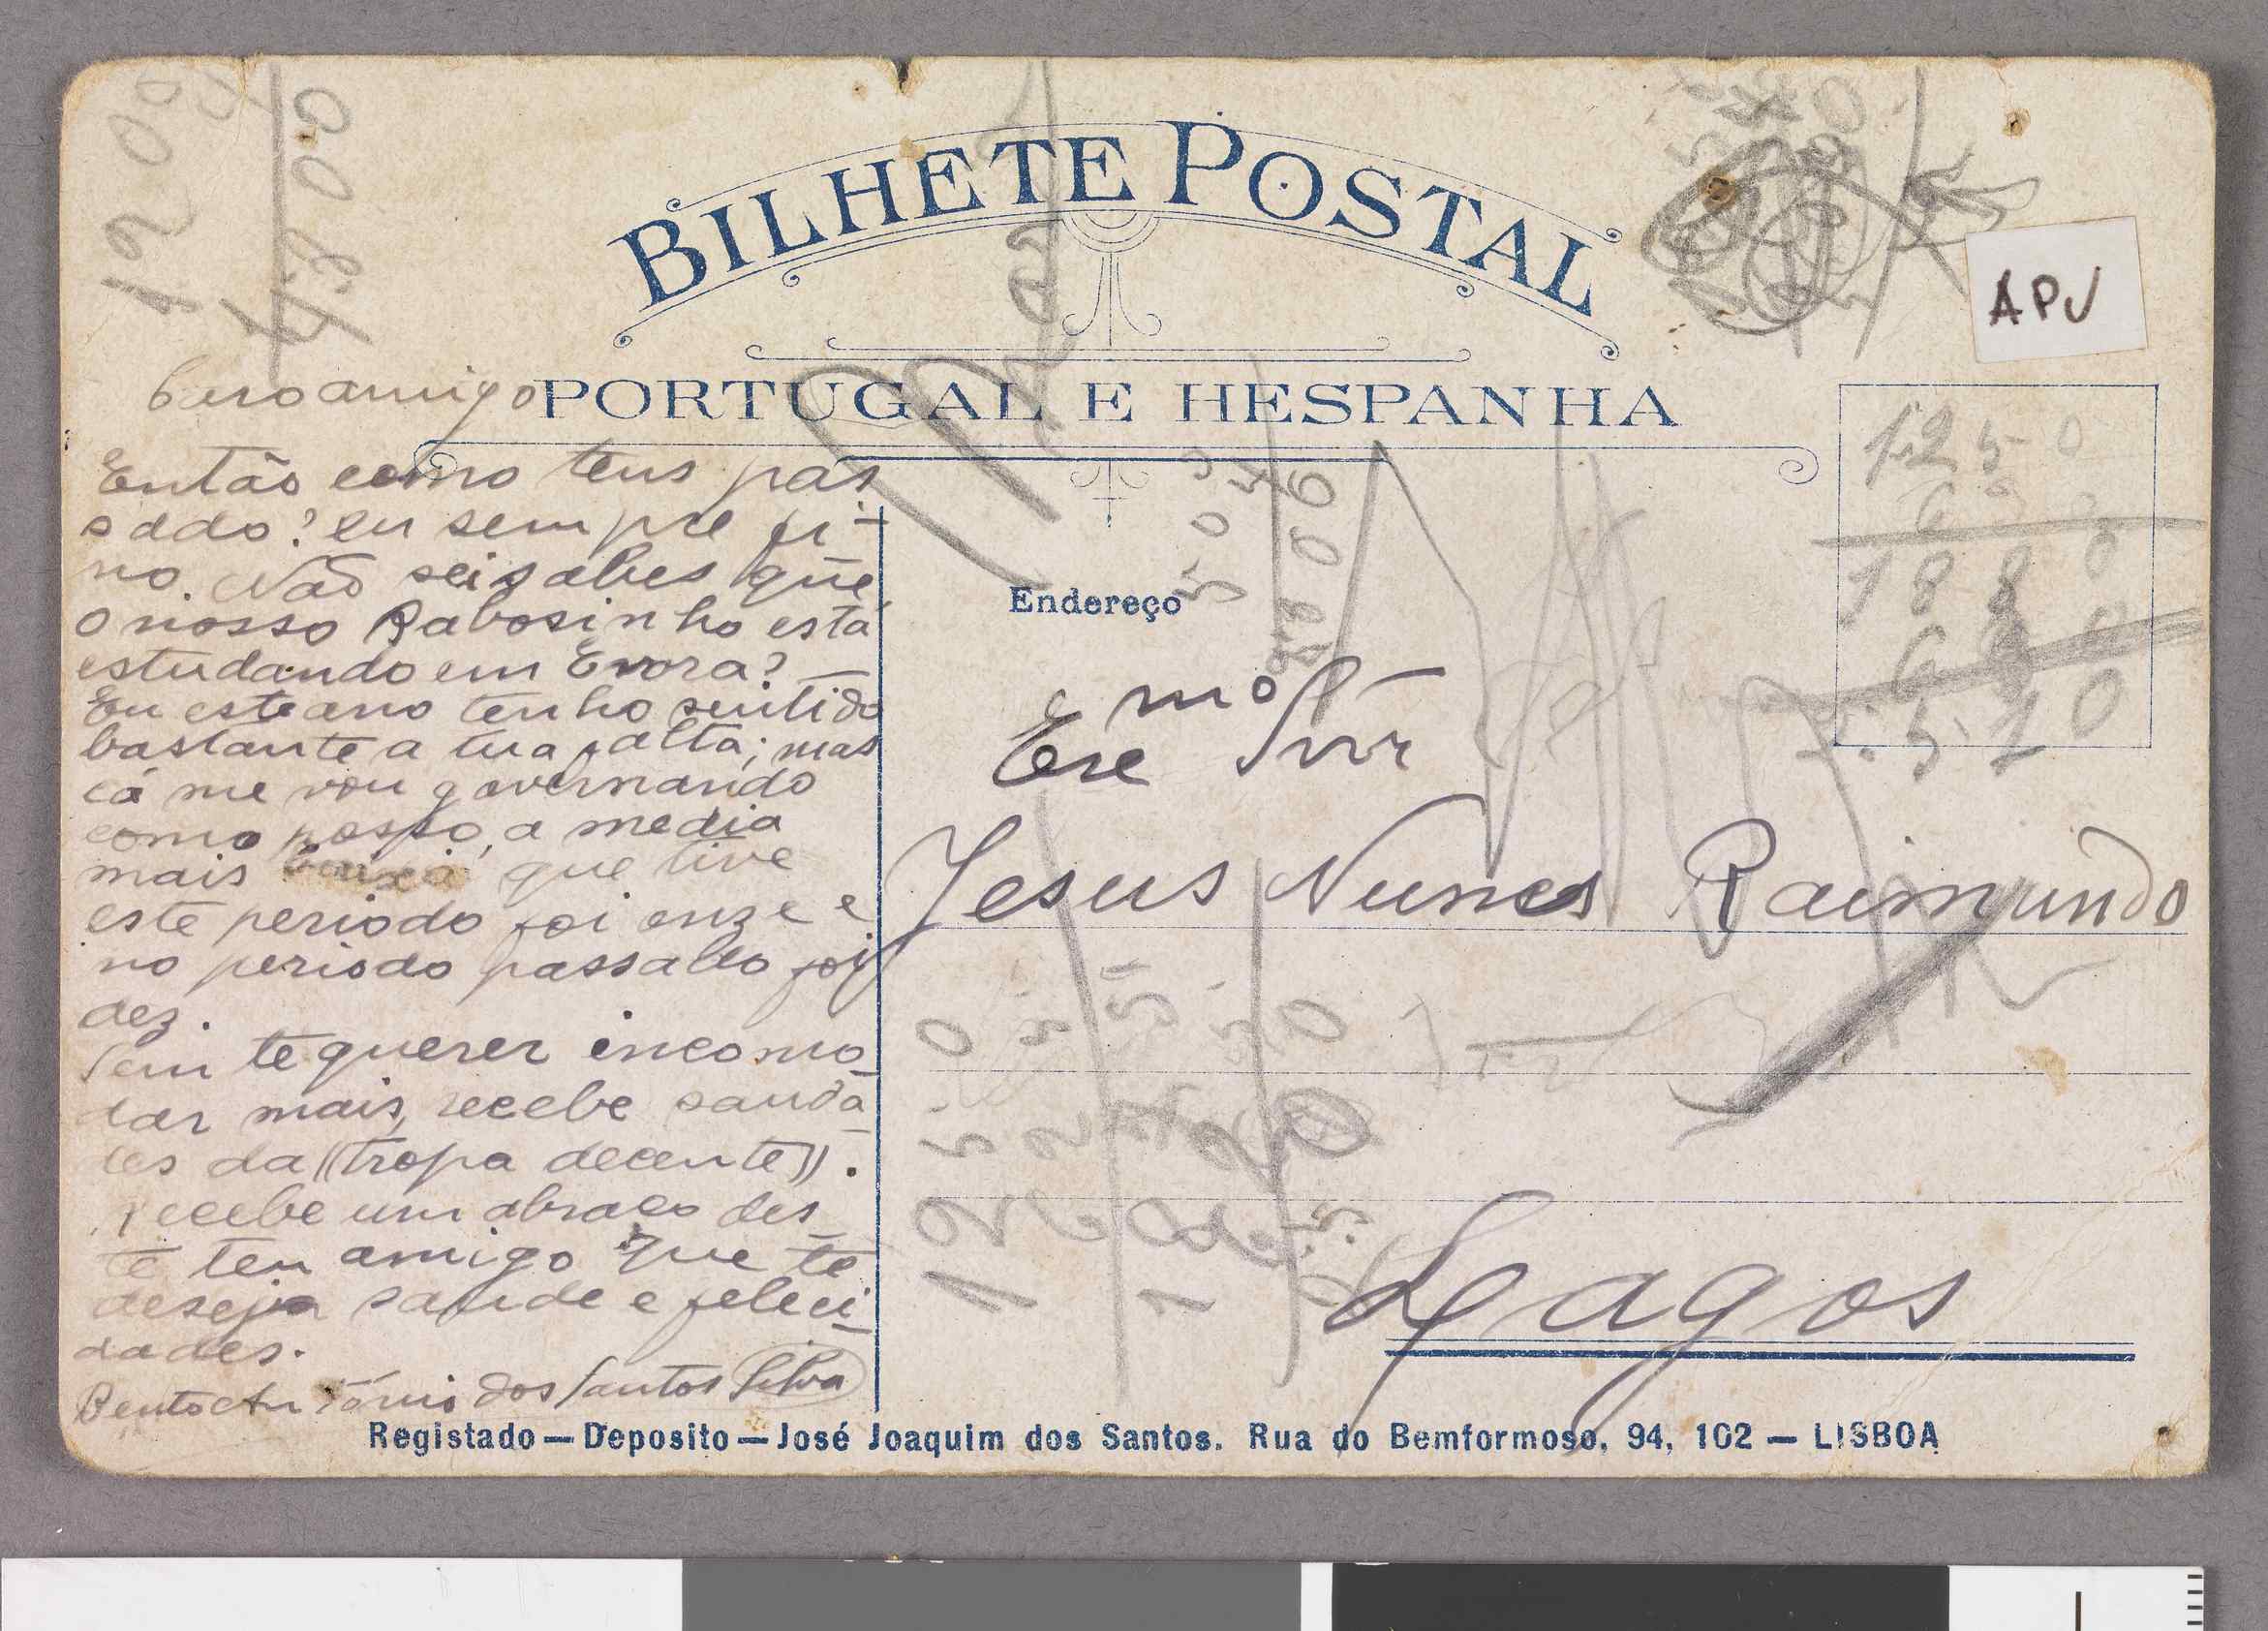 BILHETE POSTAL
PORTUGAL E HESPANHA
APV
Caro amigo
Então como tens pas
sado? eu sempre fi-
no. Não sei sabes que
o nosso Rabosinho está
estudando em Evora? —
Eu este ano tenho sentido
bastante a tua falta; mas
cá me vou governando
como posso, a media
mais baixa que tive
este periodo foi onze e
no periodo passado foi
dez.
Sem te querer incomo-
dar mais, recebe sauda-
des da ((tropa decente)).
recebe um abraço des-
te teu amigo que te
deseja saude e feleci-
dades.
Bento António dos Santos Silva
Endereço
Exe mo Snr
Jesus Nunes Raimundo
Lagos
1250
630
1880
5.510
12 00
4.8 00
Registado — Deposito — José Joaquim dos Santos. Rua do Bemformoso, 94, 102 — LISBOA